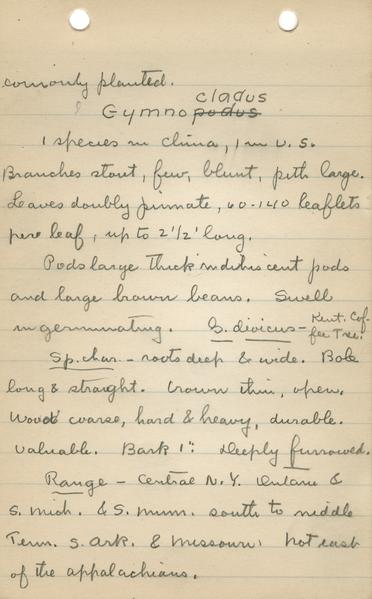 commonly planted.
Gymnopodus cladus
1 species in China, 1 in U.S.
Branches stout, few, blunt, pith large.
Leaves doubly pinnate, 60-140 leaflets
pere leaf, up to 2 1/2' long.
Pods large thick indihiscent pods
and large brown beans. Swell
in germinating. G. dioicus - Kent. Cof-
fee Tree.
Sp. char. - roots deep & wide. Bole
long & straight. Crown thin, open.
Wood coarse, hard & heavy, durable.
Valuable. Bark 1": Deeply furrowed.
Range - Central N.Y. Ontario &
S. Mich. & S. Minn. south to middle
Tenn. S. Ark. & Missouri. Not east
of the appalachians.